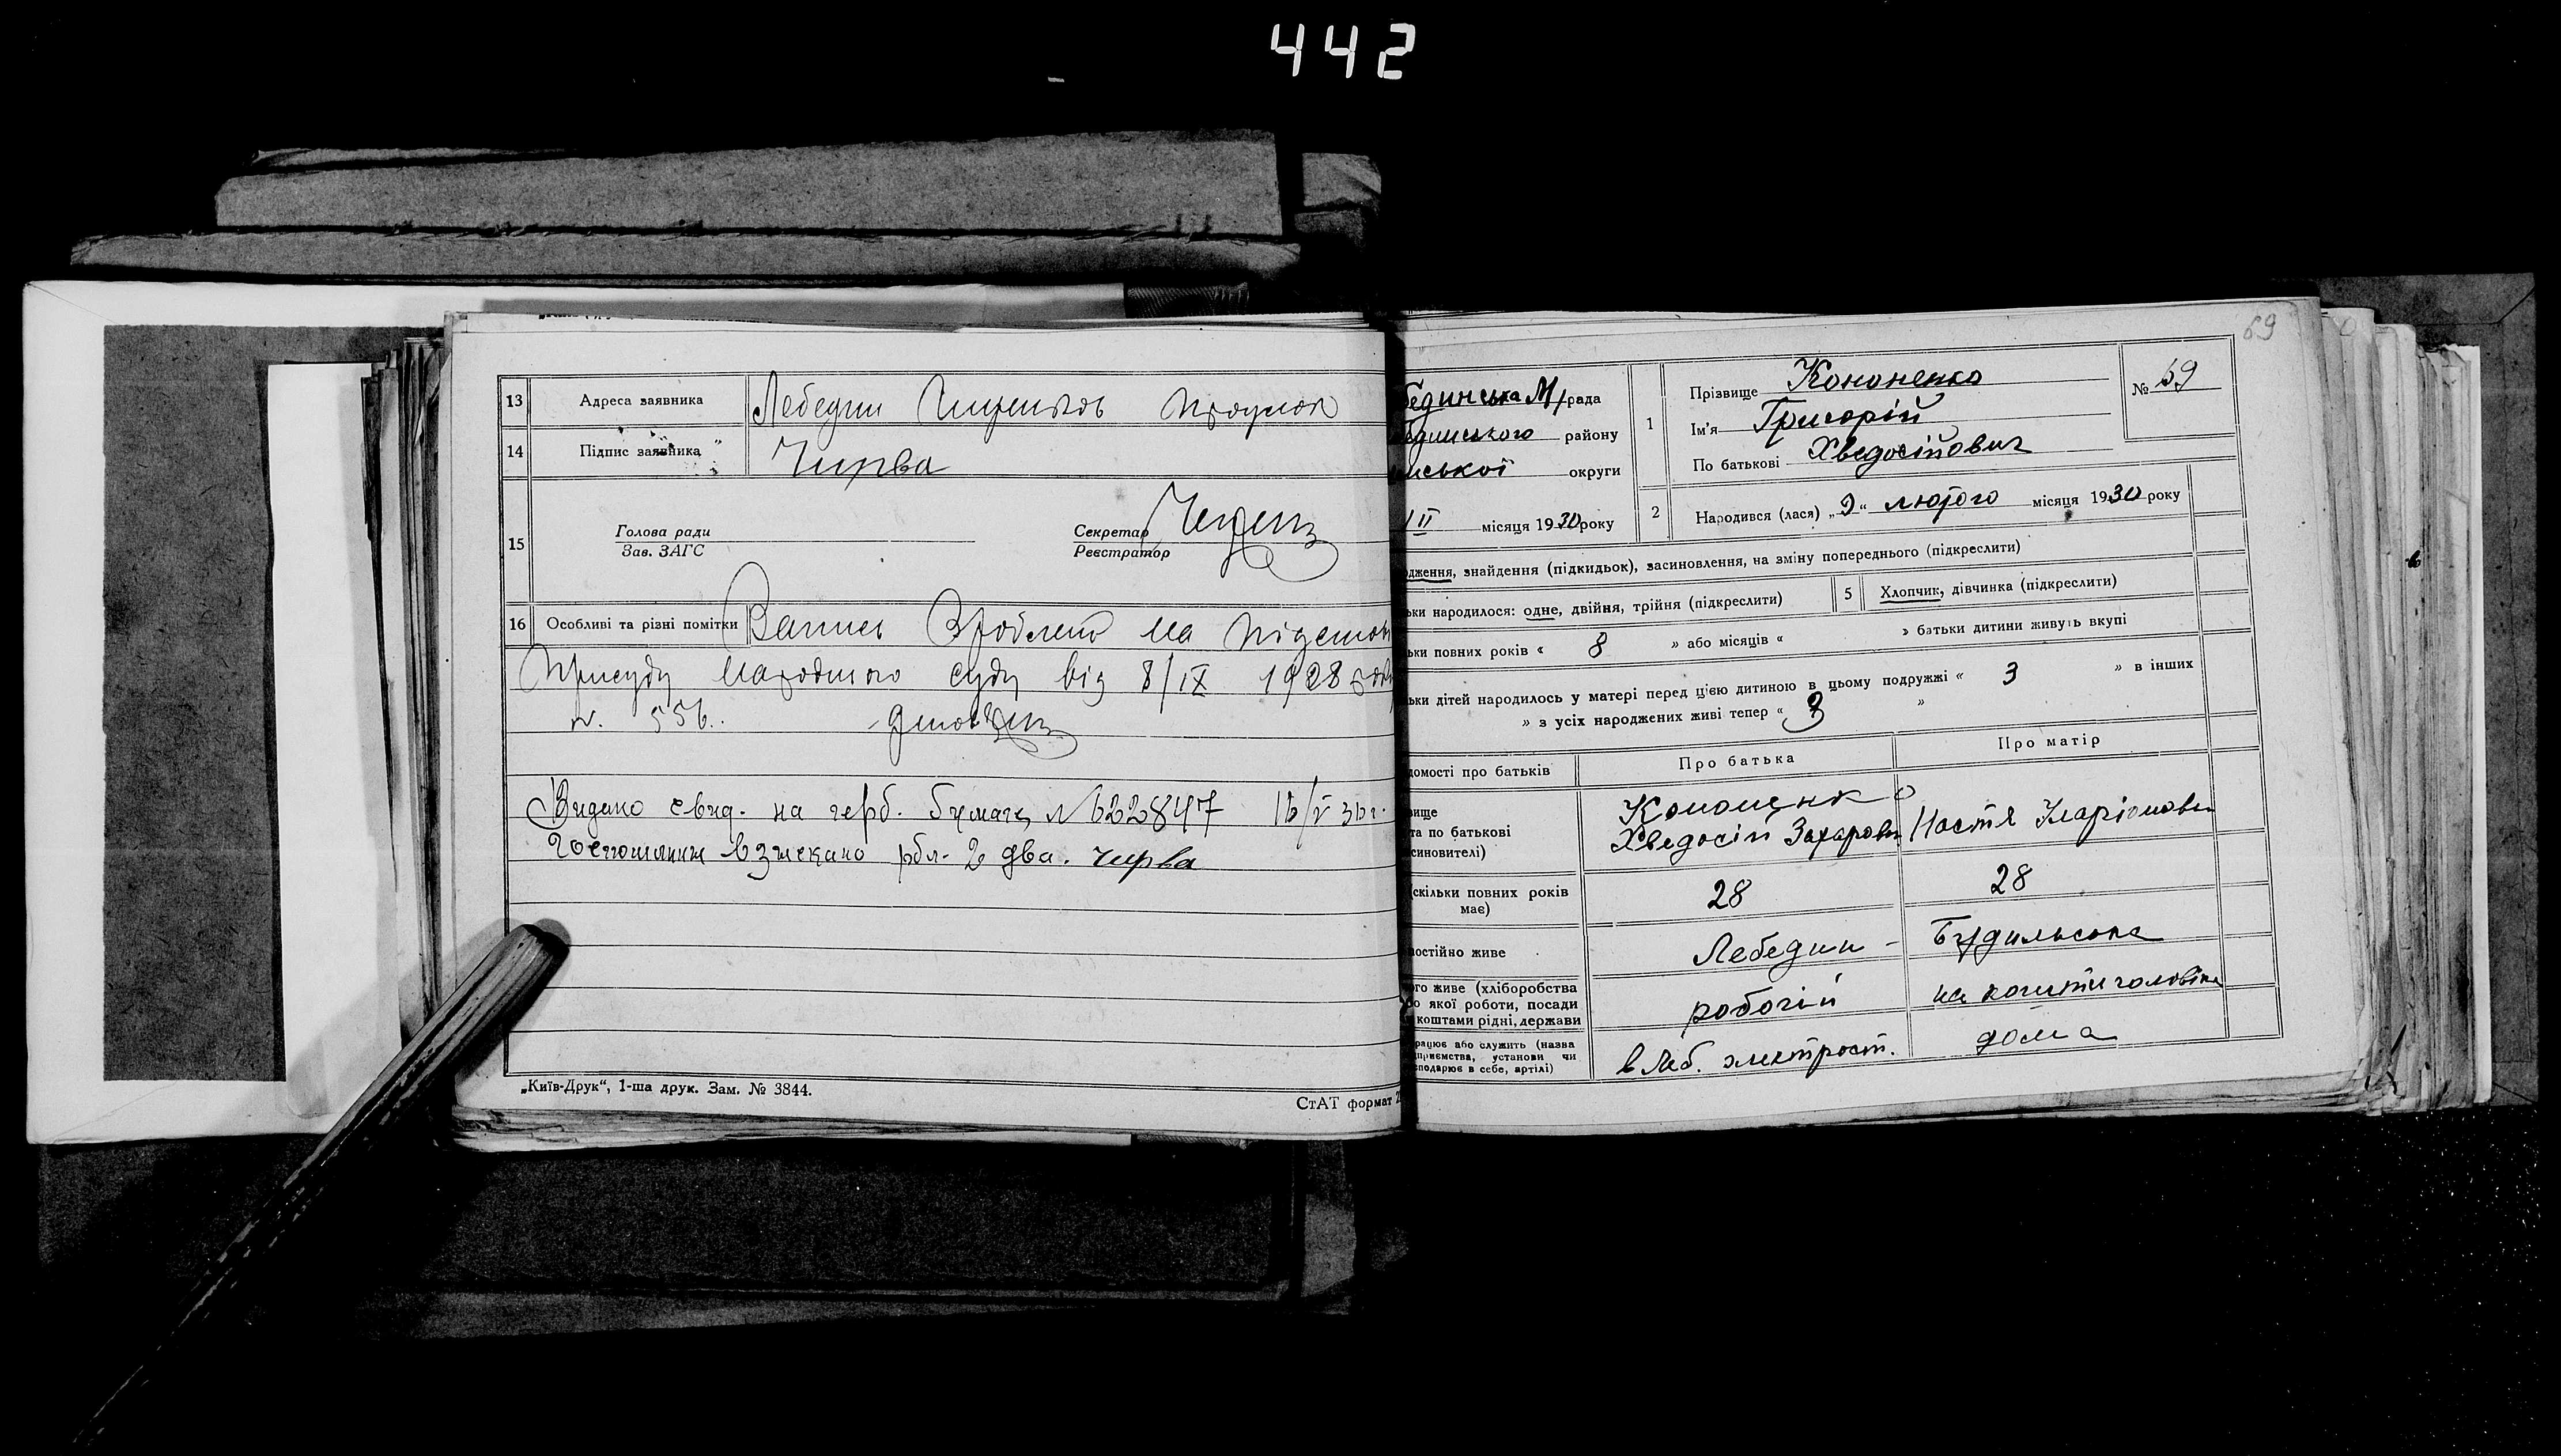 442
13 Адреса заявника Лебедин
14 Підпис заявника Чирва
Голова ради
Зав. ЗАГС
15
Секретар
Реєстратор
16 Особливі та різні помітки Запись Зроблено на підстав
Присуду Народного суду від 8/IX 1928 року
Видано свид. на герб. бумаге № 622847 16/V 36 г.
Госпошлини взыскано рбл. 2 два. Чирва
„Київ-Друк“, 1-ша друк. Зам. № 3844.
СтАТ формат
69
бединська М/рада
району
ської округи
II місяця 1930 року
1 Прізвище Кононенко
Ім'я Григорій
По батькові Хведосійович
№ 69
2 Народився (лася) „9“ лютого місяця 1930 року
одження, знайдення (підкидьок), засиновлення, на зміну попереднього (підкреслити)
ьки народилося: одне, двійня, трійня (підкреслити) 5 Хлопчик, дівчинка (підкреслити)
ьки повних років « 8 » або місяців « » батьки дитини живуть вкупі
ьки дітей народилось у матері перед цією дитиною в цьому подружжі « 3 » в інших
» з усіх народжених живі тепер « 3 »
домості про батьків Про батька Про матір
вище
та по батькові
синовителі)
Кононенко
Хведосій Захарови
Настя Іларіоновн
(скільки повних років має) 28 28
постійно живе Лебедин - Будильська
ого живе (хліборобства
о якої роботи, посади
коштами рідні, держави
робочій
на кошти чоловіка
рацює або служить (назва
дприємства, установи чи
сподарює в себе, артілі)
в Леб. электрост.
дома